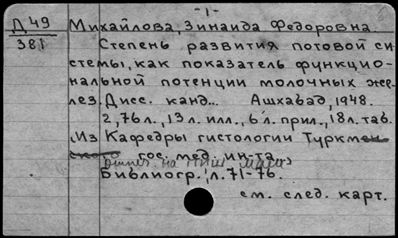 -1-
Д 49
381
Михайлова, Зинаида Федоровна
Степень развития потовой си-
стемы, как показатель функцио-
нальной потенции молочных же-
лез. Дисс. канд... Ашхабад, 1948.
2, 76 л., 13 л. илл., 6 л. прил., 18 л. таб.
(Из Кафедры гистологии Туркмен-
ского гос. мед. ин-та
на
Библиогр.: л. 71-76.
см. след. карт.